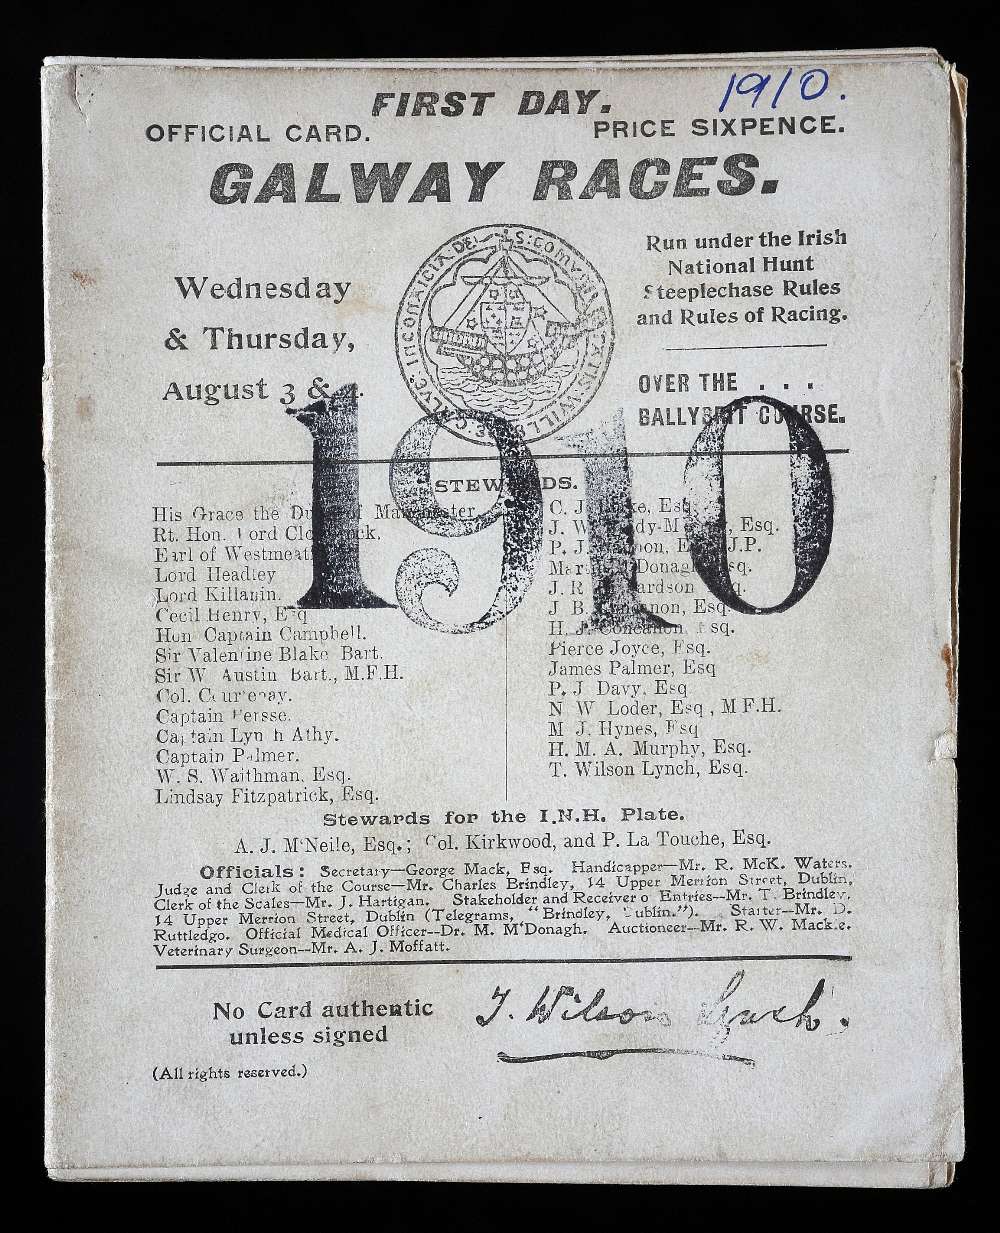 1910.
FIRST DAY.
OFFICIAL CARD. PRICE SIXPENCE.
GALWAY RACES.
Wednesday
& Thursday,
August 3 & 4.
Run under the Irish
National Hunt
Steeplechase Rules
and Rules of Racing.
OVER THE . . .
BALLYBRIT COURSE.
1910
STEWARDS.
His Grace the Duke of Manchester
Rt. Hon. Lord Clonbrock.
Earl of Westmeath
Lord Headley
Lord Killanin.
Cecil Henry, Esq
Hon Captain Campbell.
Sir Valentine Blake Bart.
Sir W Austin Bart., M.F.H.
Col. Courtenay.
Captain Persse.
Captain Lynch Athy.
Captain Palmer.
W. S. Waithman, Esq.
Lindsay Fitzpatrick, Esq.
C. J. Esq.
J. W. Esq.
P. J. J.P.
Esq.
J. R Richardson Esq.
J. B. Concanon, Esq.
H. J. Concanon Esq.
Pierce Joyce, Esq.
James Palmer, Esq
P. J Davy, Esq
N W Loder, Esq , M F.H.
M J. Hynes, Esq
H. M. A. Murphy, Esq.
T. Wilson Lynch, Esq.
Stewards for the I.N.H. Plate.
A. J. M'Neile, Esq.; Col. Kirkwood, and P. La Touche, Esq.
Officials: Secretary—George Mack, Esq. Handicapper—Mr. R. McK. Waters.
Judge and Clerk of the Course—Mr. Charles Brindley, 14 Upper Merrion Street, Dublin,
Clerk of the Scales—Mr. J. Hartigan. Stakeholder and Receiver o Entries—Mr. T. Brindley,
14 Upper Merrion Street, Dublin (Telegrams, "Brindley, Dublin."). Starter—Mr. D.
Ruttledgo. Official Medical Officer--Dr. M. M'Donagh. Auctioneer—Mr. R. W. Mackie.
Veterinary Surgeon--Mr. A. J. Moffatt.
No Card authentic
unless signed
T. Wilson Lynch.
(All rights reserved.)